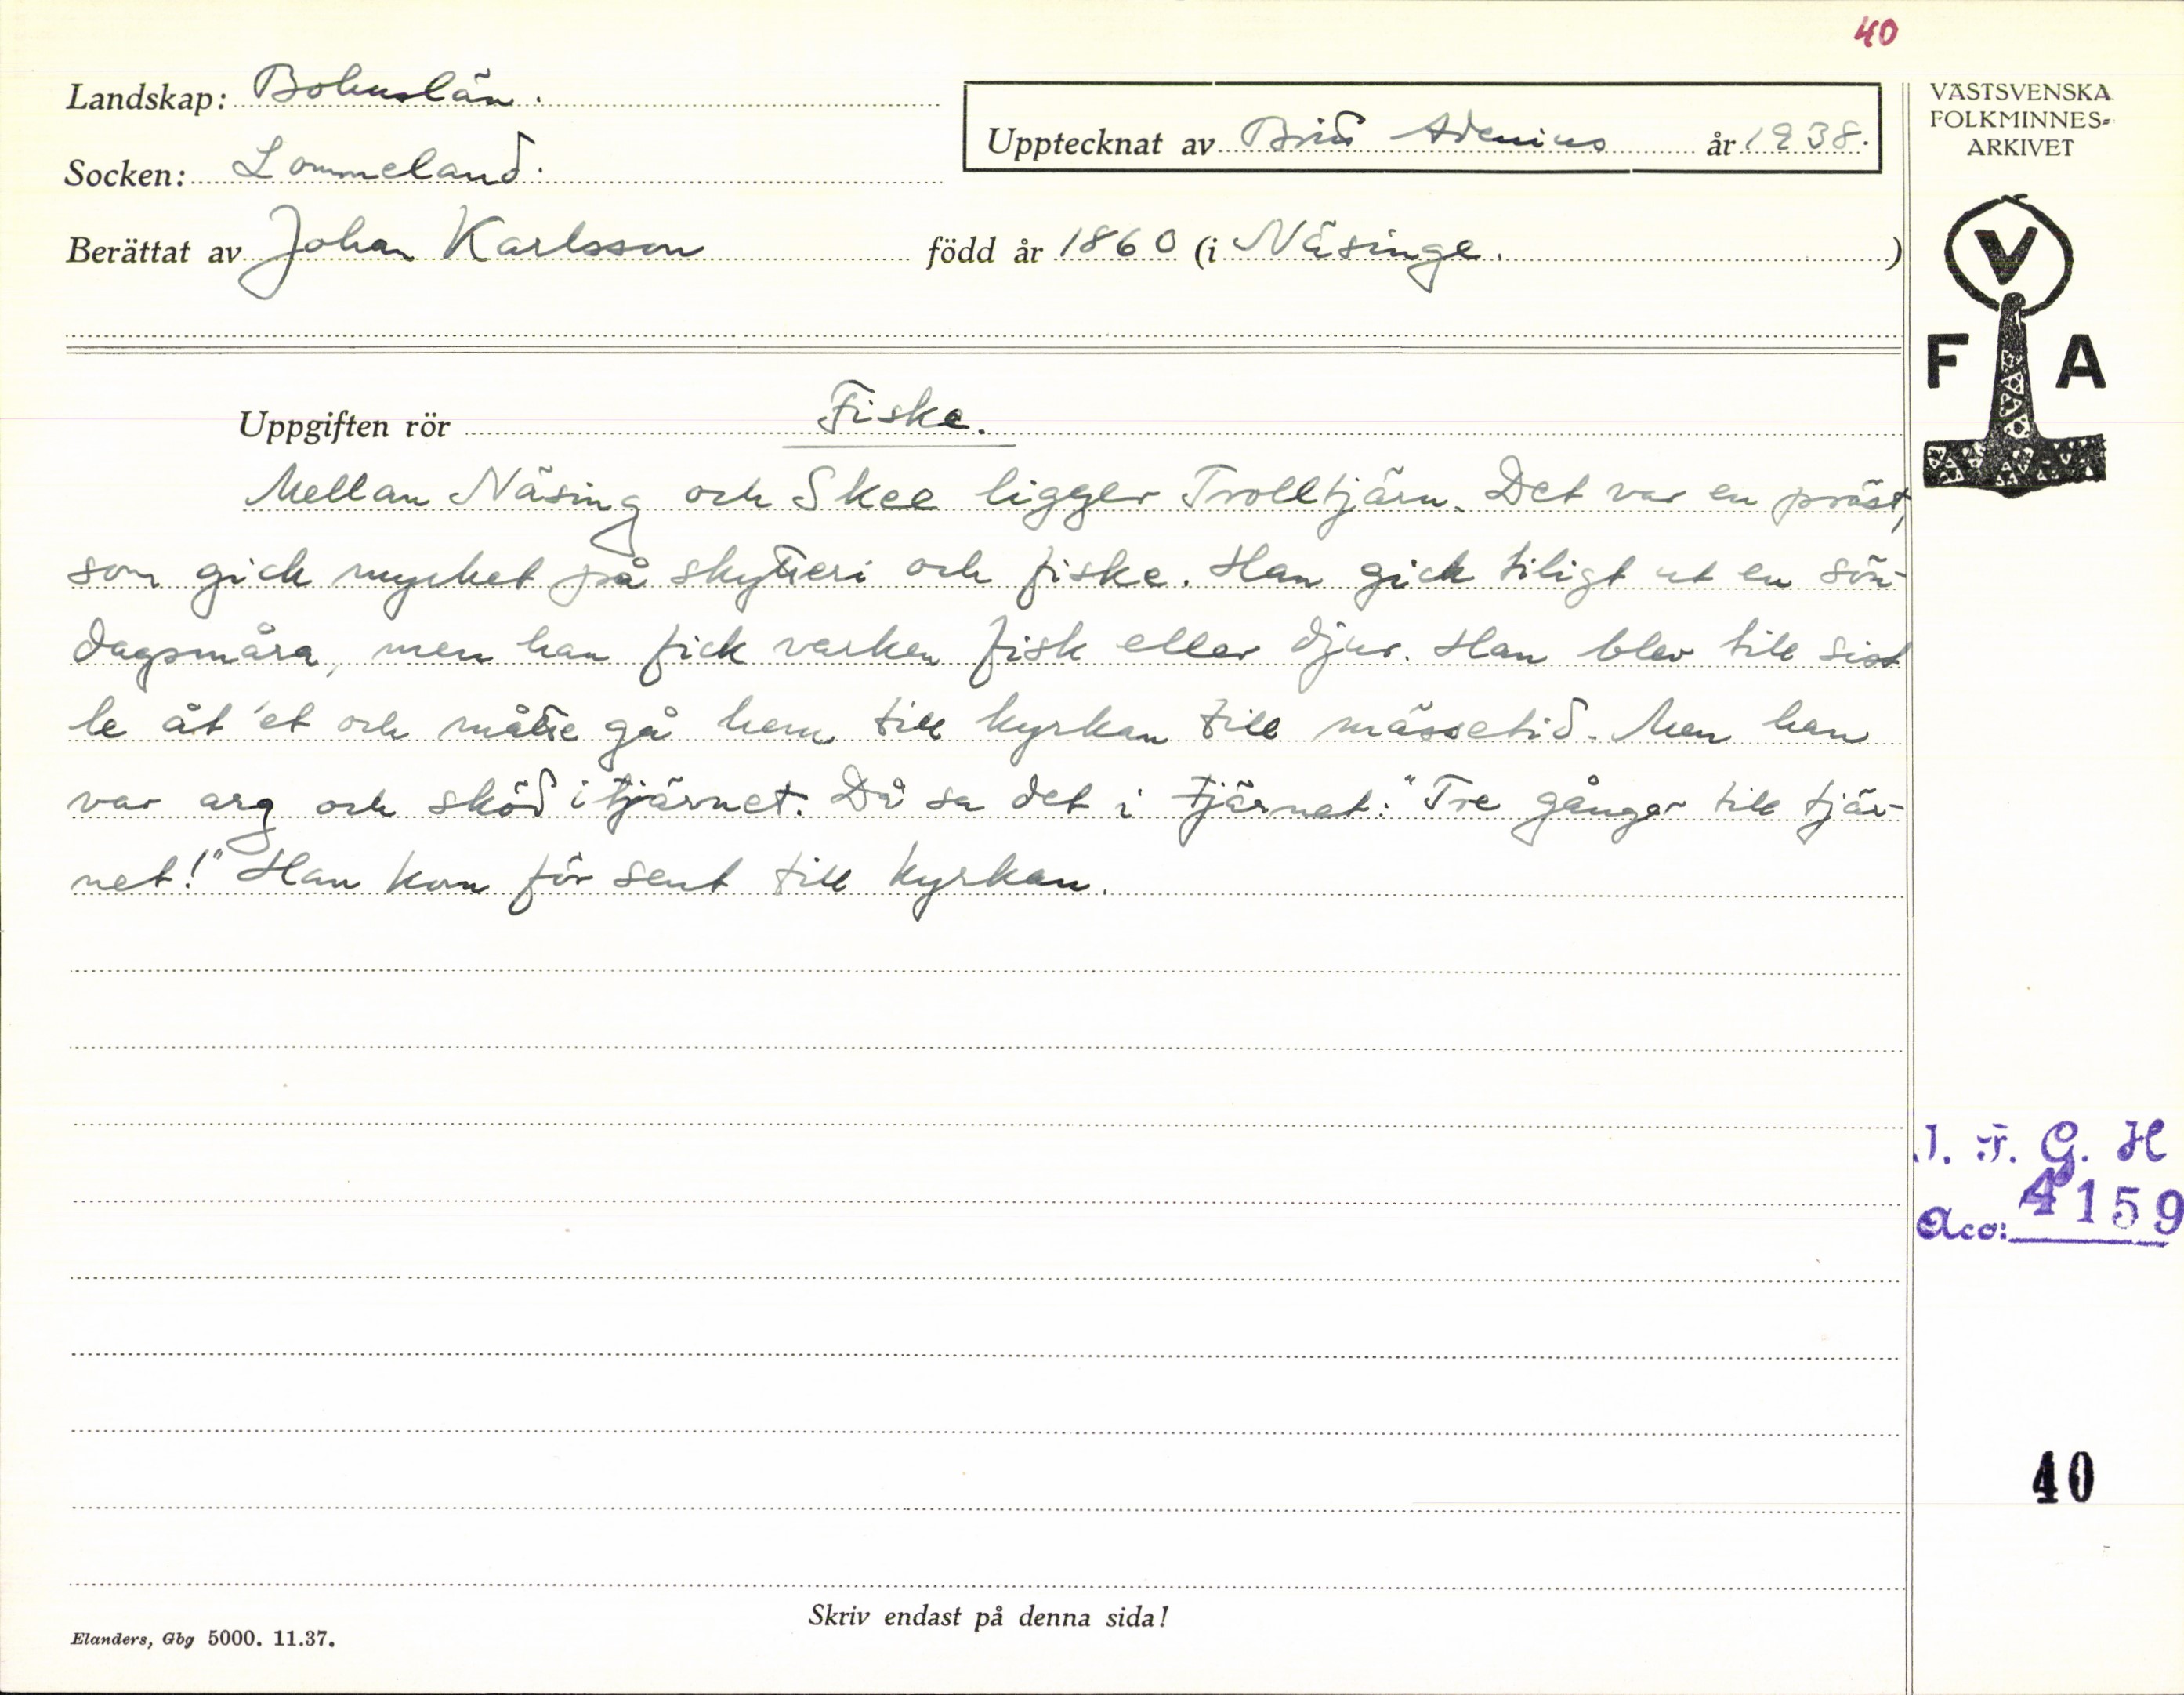 40
Landskap: Bohuslän.
Upptecknat av Britta Adenius år 1938.
Socken: Lommeland.
Berättat av Johan Karlsson född år 1860 (i Näsinge.)
VÄSTSVENSKA
FOLKMINNES-
ARKIVET
V
F A
Uppgiften rör Fiske.
Mellan Näsing och Skee ligger Trolltjärn. Det var en präst,
som gick mycket på skytteri och fiske. Han gick tiligt ut en sön-
dagsmåra, men han fick varken fisk eller djur. Han blev till sist
le åt 'et och måtte gå hem till kyrkan till mässetid. Men han
var arg och sköd i tjärnet. Då sa det i tjärnet: "Tre gånger till tjär-
net!" Han kom för sent till kyrkan.
I. F. G. H
Acc: 4159
40
Skriv endast på denna sida!
Elanders, Gbg 5000. 11.37.